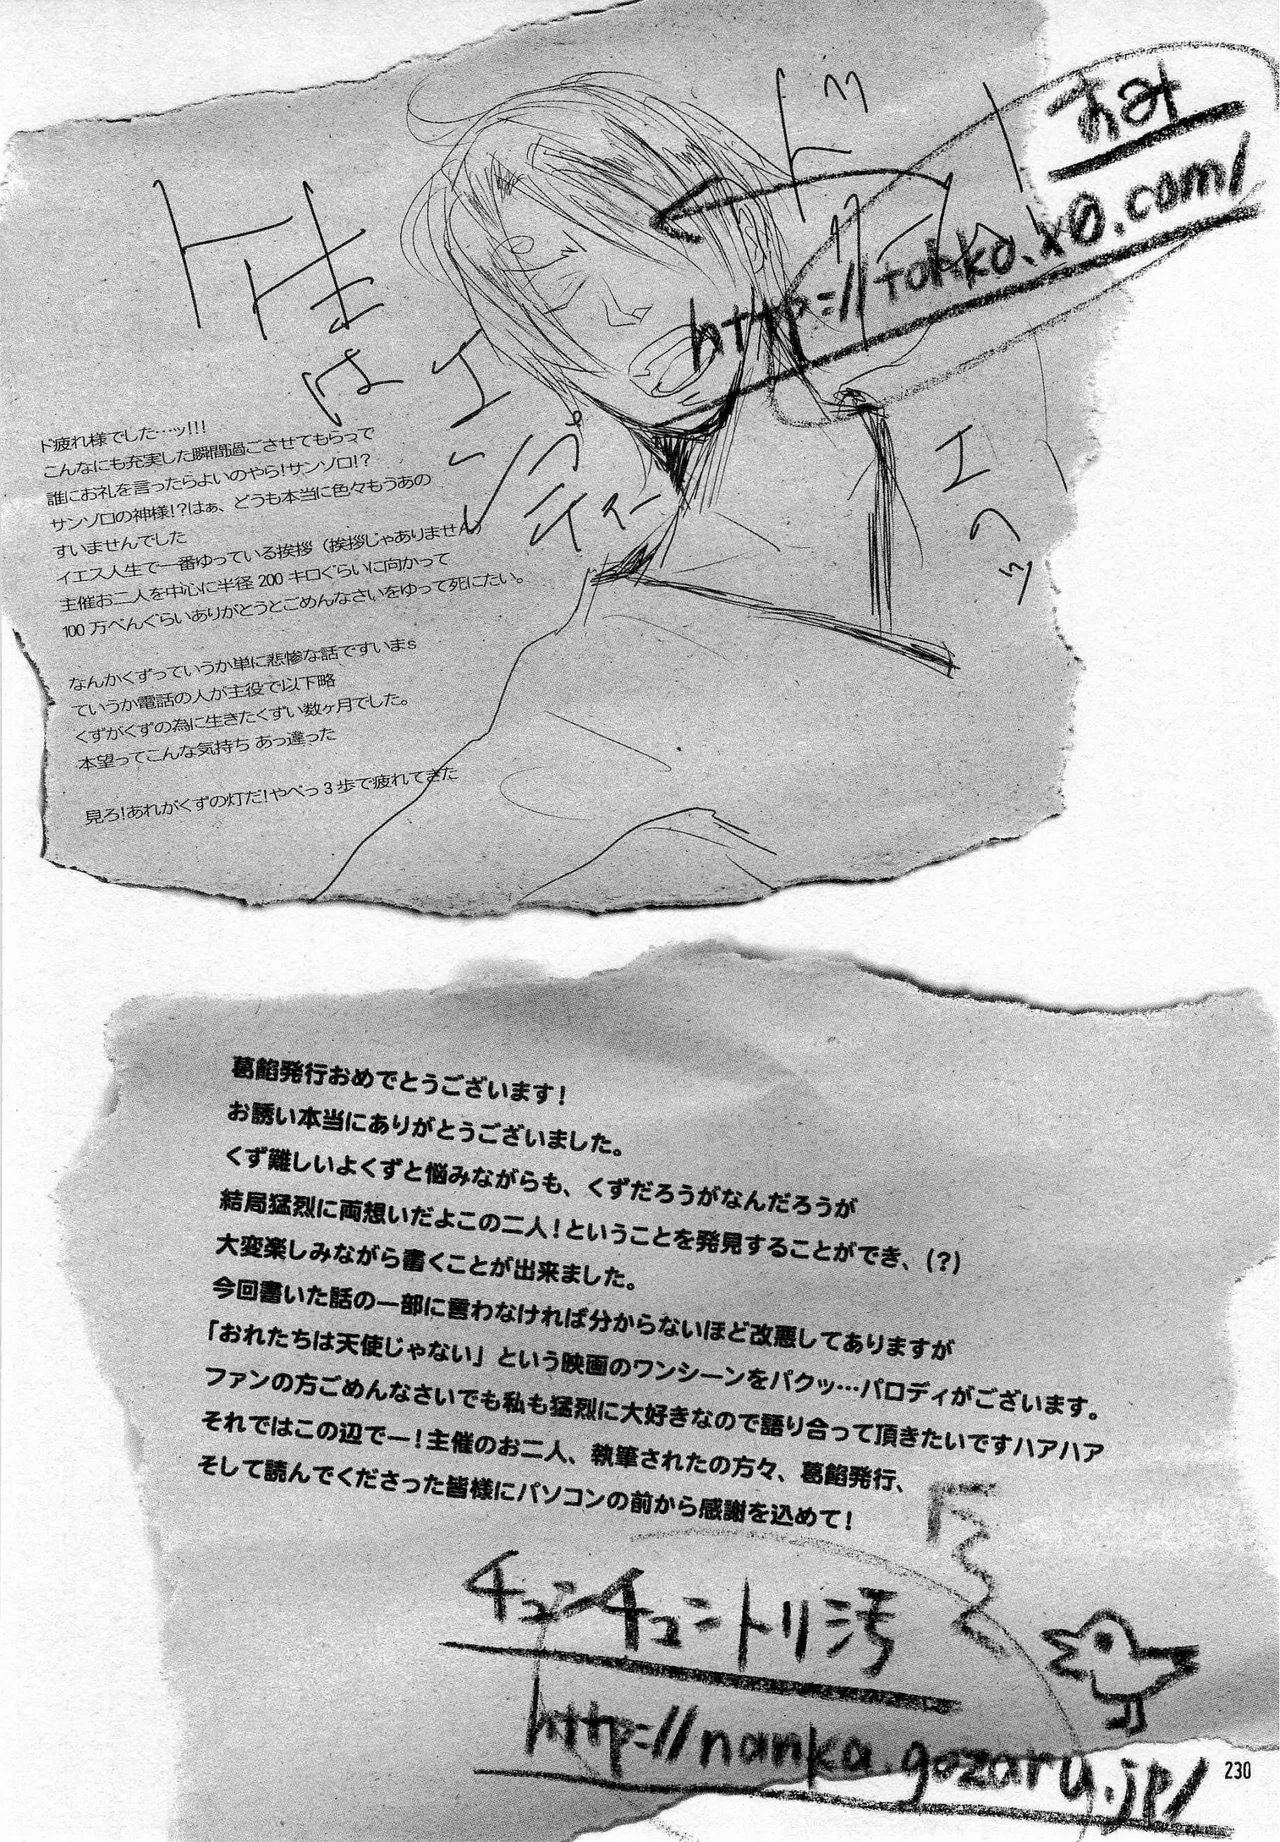 あみ
http://tohko.x0.com/
ド疲れ様でした…ッ!!!
こんなにも充実した瞬間過ごさせてもらって
誰にお礼を言ったらよいのやら!サンゾロ!?
サンゾロの神様!?はぁ、どうも本当に色々もうあの
すいませんでした
イエス人生で一番ゆっている挨拶（挨拶じゃありません）
主催お二人を中心に半径 200 キロぐらいに向かって
100 万べんぐらいありがとうとごめんなさいをゆって死にたい。
なんかくずっていうか単に悲惨な話ですいまs
ていうか電話の人が主役で以下略
くずがくずの為に生きたくずい数ヶ月でした。
本望ってこんな気持ち あっ違った
見ろ!あれがくずの灯だ!やべっ 3 歩で疲れてきた
葛餡発行おめでとうございます！
お誘い本当にありがとうございました。
くず難しいよくずと悩みながらも、くずだろうがなんだろうが
結局猛烈に両想いだよこの二人！ということを発見することができ、(？)
大変楽しみながら書くことが出来ました。
今回書いた話の一部に言わなければ分からないほど改悪してありますが
「おれたちは天使じゃない」という映画のワンシーンをパクッ…パロディがございます。
ファンの方ごめんなさいでも私も猛烈に大好きなので語り合って頂きたいですハアハア
それではこの辺でー！主催のお二人、執筆されたの方々、葛餡発行、
そして読んでくださった皆様にパソコンの前から感謝を込めて！
チュンチュントリ汚
http://nanka.gozaru.jp/
230